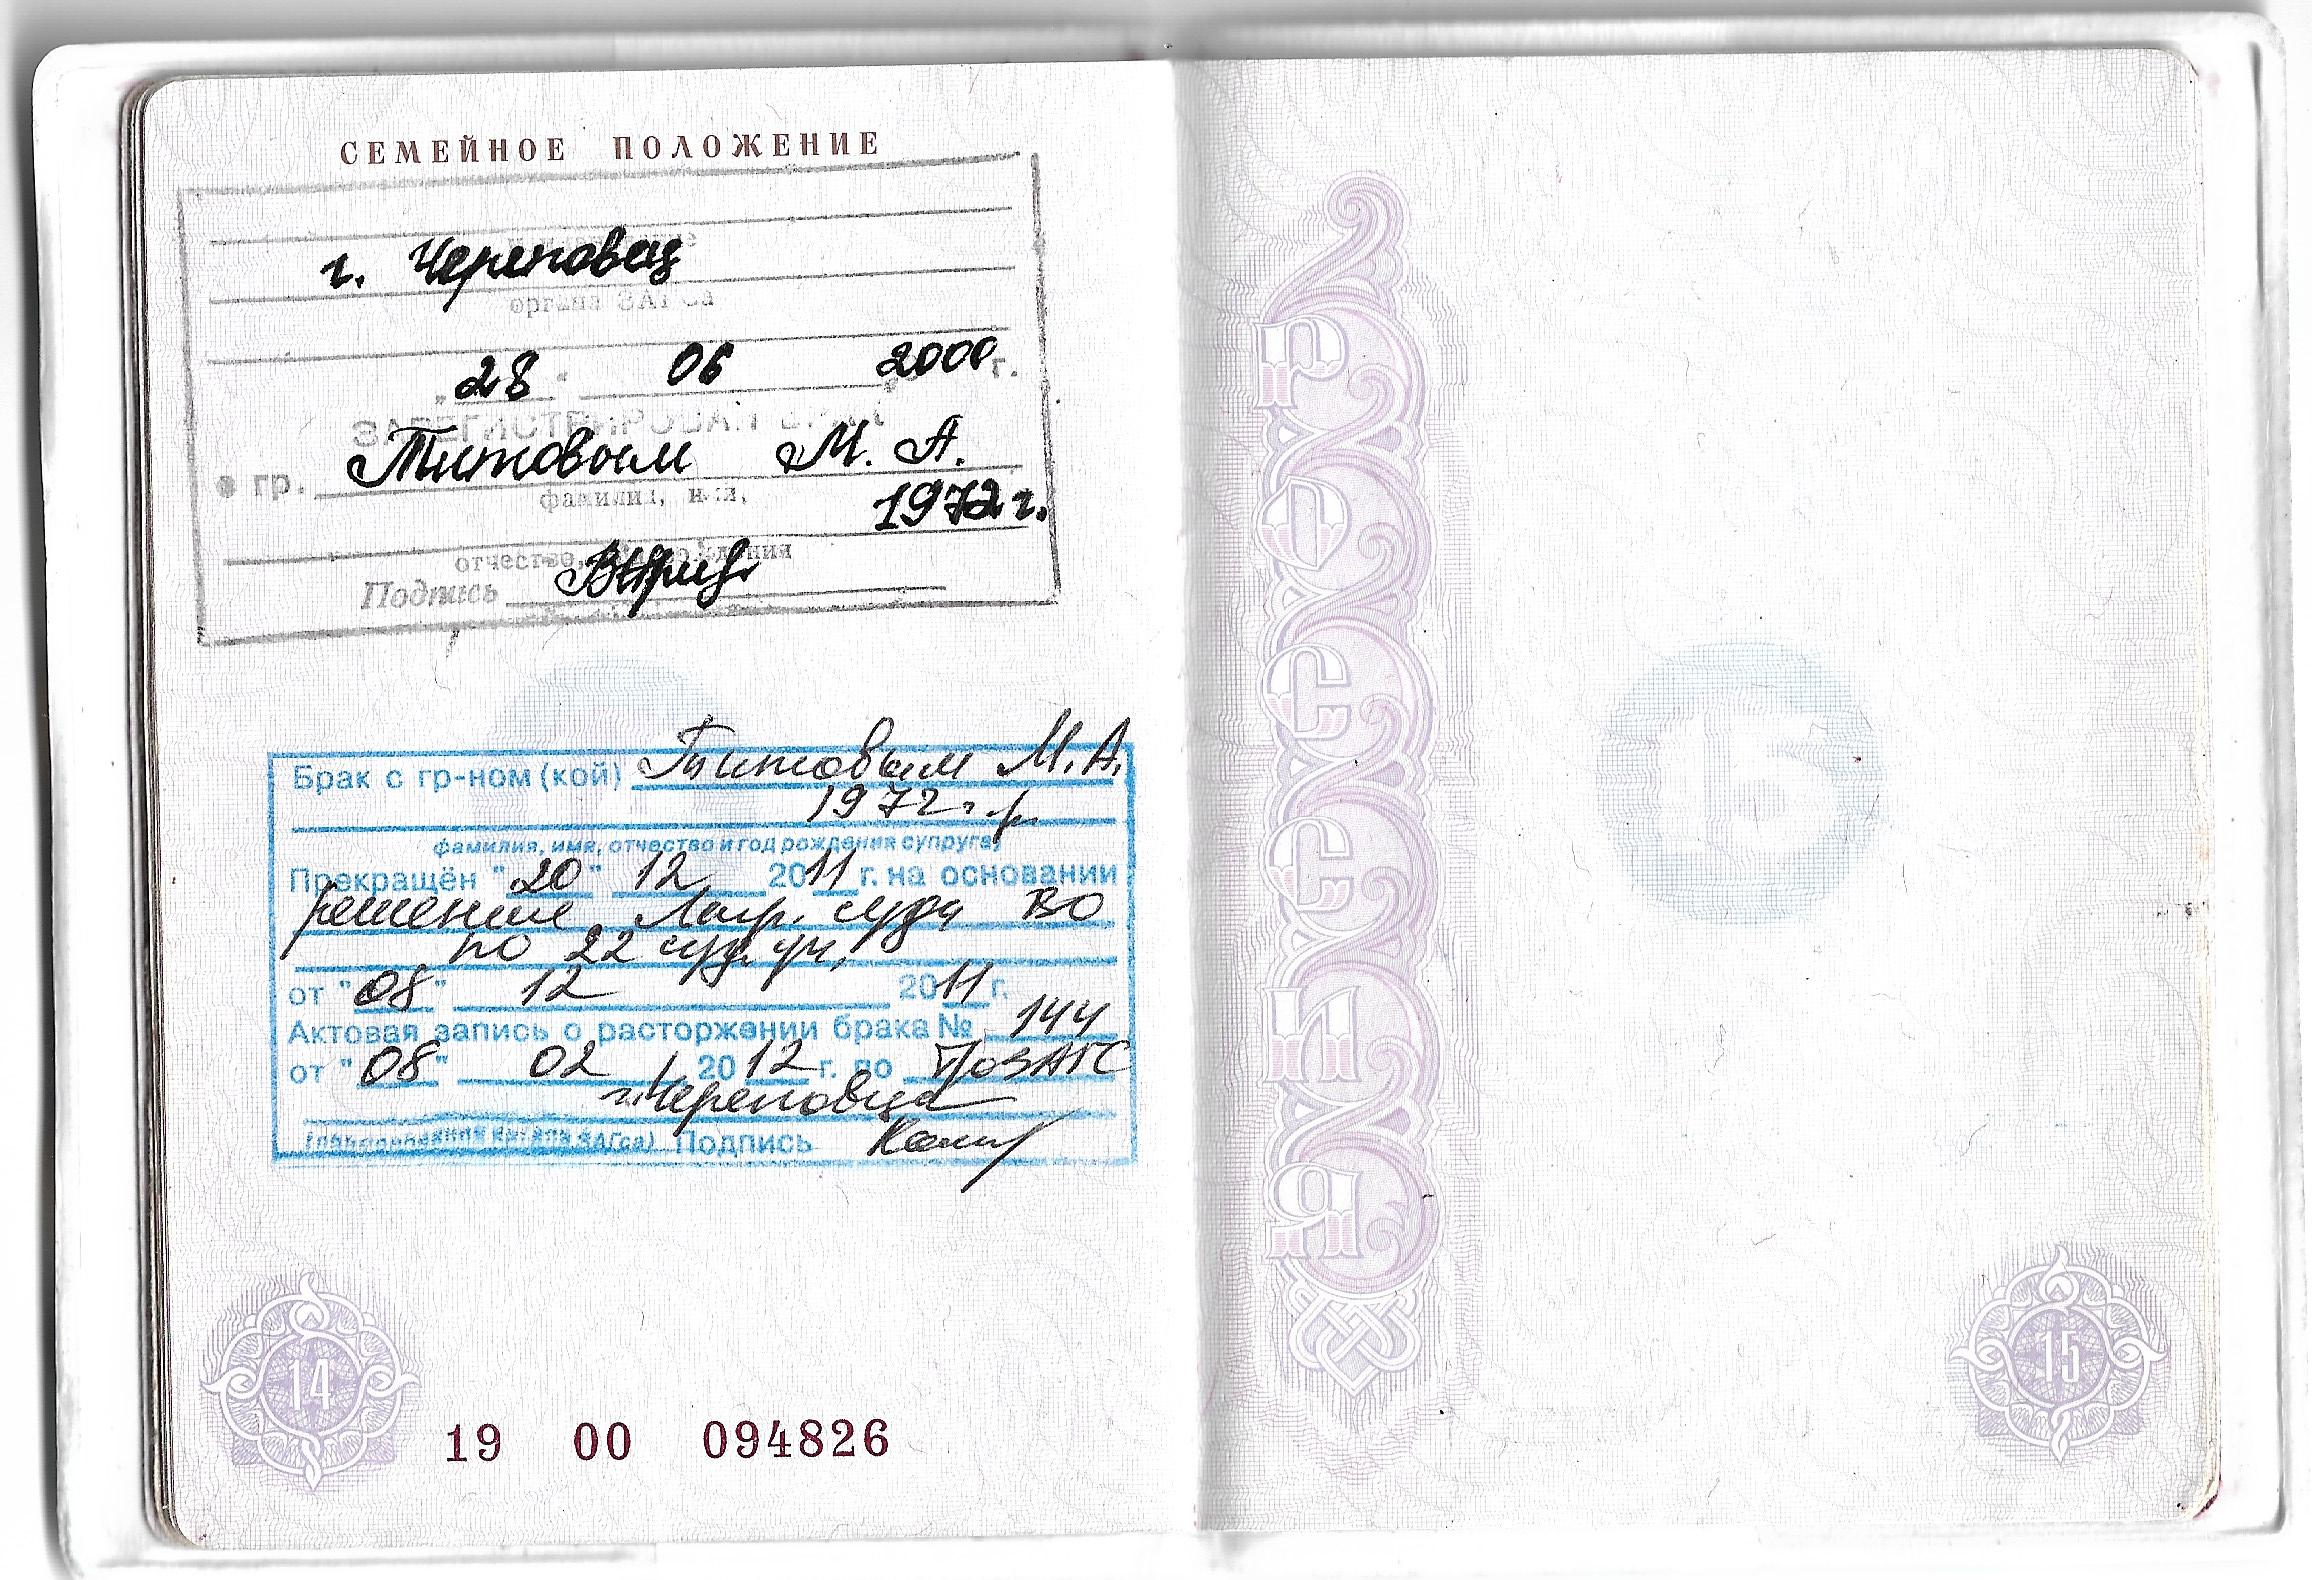 СЕМЕЙНОЕ ПОЛОЖЕНИЕ
г. Череповец
органа ЗАГСа
"28" 06 2000 г.
ЗАРЕГИСТРИРОВАН БРАК
с гр. Титовым М. А.
фамилия, имя,
1972 г.
отчество, рождения
Подпись
Брак с гр-ном (кой) Титовым М. А.
1972 г. р.
фамилия, имя, отчество и год рождения супруга)
Прекращён "20" 12 2011 г. на основании
решения суда ВО
по 22 суд. уч.
от "08" 12 2011 г.
Актовая запись о расторжении брака № 144
от "08" 02 2012 г. во ЗАГС
г. Череповца
(наименование органа ЗАГСа) Подпись
14
19 00 094826
РОССИЯ
15